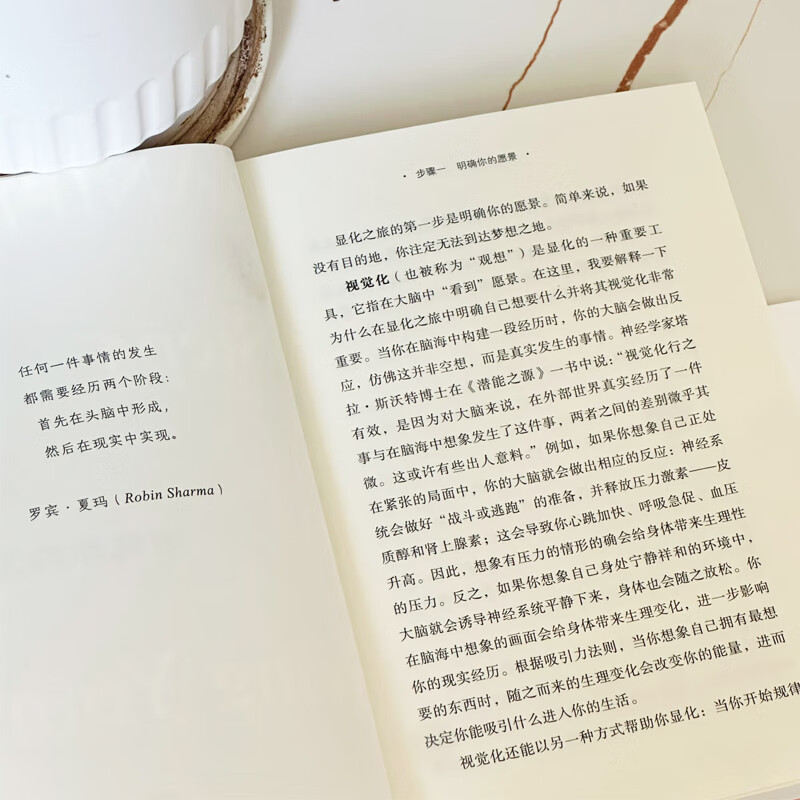 任何一件事情的发生
都需要经历两个阶段：
首先在头脑中形成，
然后在现实中实现。
罗宾·夏玛（Robin Sharma）
· 步骤一 明确你的愿景 ·
显化之旅的第一步是明确你的愿景。简单来说，如果
没有目的地，你注定无法到达梦想之地。
视觉化（也被称为“观想”）是显化的一种重要工
具，它指在大脑中“看到”愿景。在这里，我要解释一下
为什么在显化之旅中明确自己想要什么并将其视觉化非常
重要。当你在脑海中构建一段经历时，你的大脑会做出反
应，仿佛这并非空想，而是真实发生的事情。神经学家塔
拉·斯沃特博士在《潜能之源》一书中说：“视觉化行之
有效，是因为对大脑来说，在外部世界真实经历了一件
事与在脑海中想象发生了这件事，两者之间的差别微乎其
微。这或许有些出人意料。”例如，如果你想象自己正处
在紧张的局面中，你的大脑就会做出相应的反应：神经系
统会做好“战斗或逃跑”的准备，并释放压力激素——皮
质醇和肾上腺素；这会导致你心跳加快、呼吸急促、血压
升高。因此，想象有压力的情形的确会给身体带来生理性
的压力。反之，如果你想象自己身处宁静祥和的环境中，
大脑就会诱导神经系统平静下来，身体也会随之放松。你
在脑海中想象的画面会给身体带来生理变化，进一步影响
你的现实经历。根据吸引力法则，当你想象自己拥有最想
要的东西时，随之而来的生理变化会改变你的能量，进而
决定你能吸引什么进入你的生活。
视觉化还能以另一种方式帮助你显化：当你开始规律